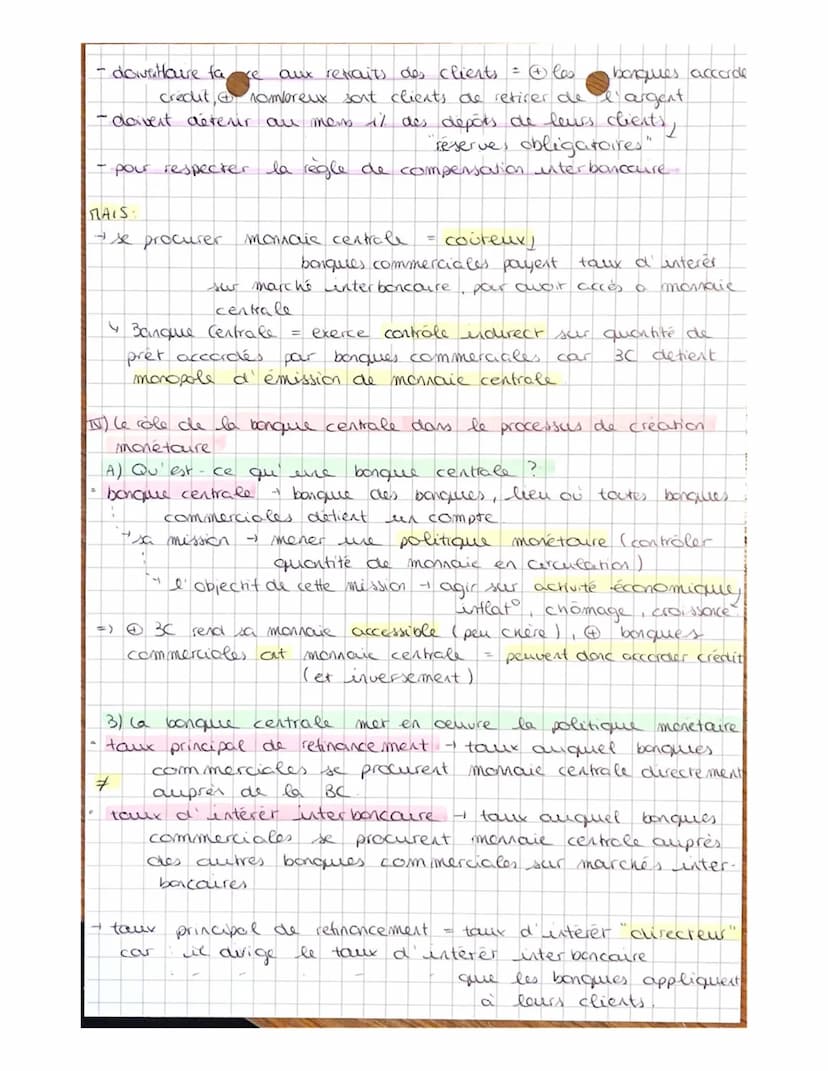 - doivent faire face aux retraits des clients = ⊕ les banques accorde
crédit, ⊕ nombreux sont clients de retirer de l'argent
- doivent détenir au moins 1% des dépôts de leurs clients,
"réserves obligatoires"
- pour respecter la règle de compensation interbancaire
MAIS:
→ se procurer monnaie centrale = coûteux,
banques commerciales payent taux d'intérêt
sur marché interbancaire, pour avoir accès à monnaie
centrale
↳ Banque Centrale = exerce contrôle indirect sur quantité de
prêt accordés par banques commerciales car BC détient
monopole d'émission de monnaie centrale
IV) Le rôle de la banque centrale dans le processus de création
monétaire
A) Qu'est-ce qu'une banque centrale ?
• banque centrale → banque des banques, lieu où toutes banques
commerciales détient un compte
→ sa mission → mener une politique monétaire (contrôler
quantité de monnaie en circulation)
→ l'objectif de cette mission → agir sur activité économique,
inflat°, chômage, croissance
=> ⊕ BC rend sa monnaie accessible (peu chère), ⊕ banques
commerciales ont monnaie centrale = peuvent donc accorder crédit
(et inversement)
B) La banque centrale met en oeuvre la politique monétaire
• taux principal de refinancement → taux auquel banques
commerciales se procurent monnaie centrale directement
≠ auprès de la BC
• taux d'intérêt interbancaire → taux auquel banques
commerciales se procurent monnaie centrale auprès
des autres banques commerciales sur marchés inter-
bancaires
→ taux principal de refinancement = taux d'intérêt "directeur"
car il dirige le taux d'intérêt interbancaire
que les banques appliquent
à leurs clients.